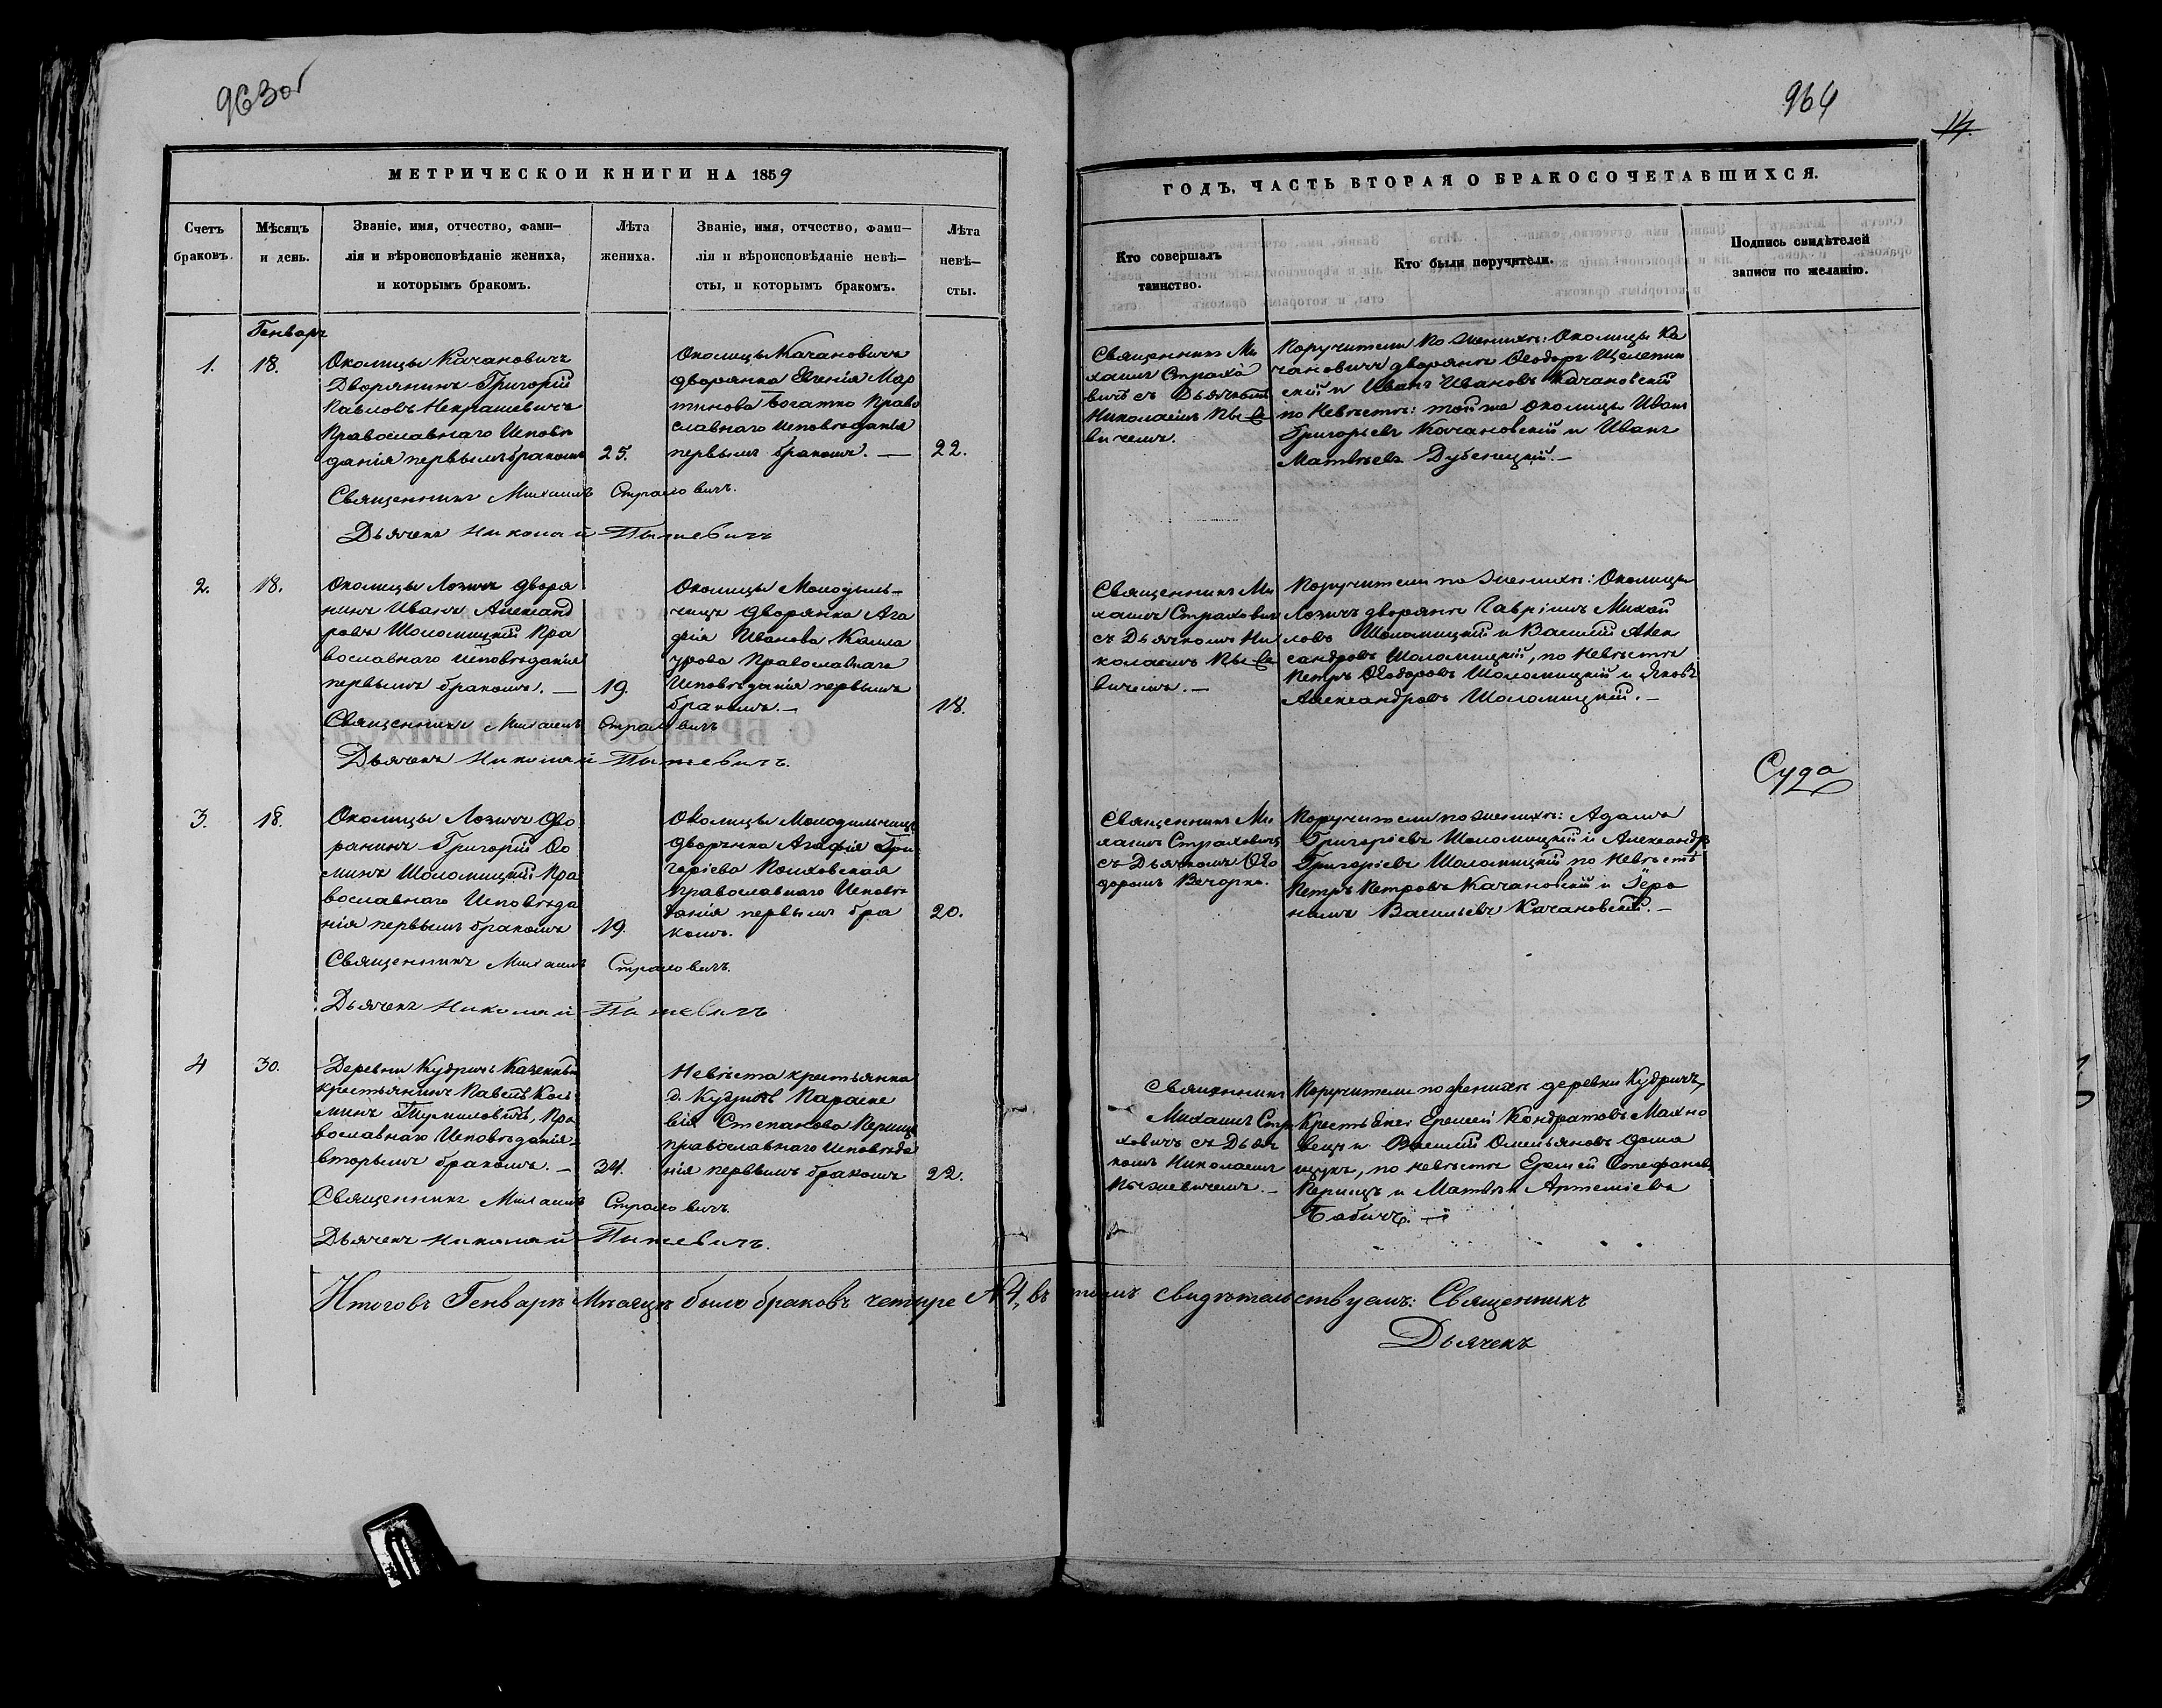 963об
МЕТРИЧЕСКОЙ КНИГИ НА 1859
Счетъ браковъ.
Мѣсяцъ и день.
Званіе, имя, отчество, фами-
лія и вѣроисповѣданіе жениха,
и которымъ бракомъ.
Лѣта жениха.
Званіе, имя, отчество, фами-
лія и вѣроисповѣданіе невѣ-
сты, и которымъ бракомъ.
Лѣта невѣ-
сты.
Генварь
1.
18.
Околицы Качановичъ
Дворянинъ Григорій
Павловъ Некрашевичъ
Православнаго Исповѣ
данія первымъ бракомъ
25.
Околицы Качановичъ
дворянка Евгенія Мар
тинова Богатко Право
славнаго исповѣданія
первымъ бракомъ. —
22.
Священникъ Михаилъ Страховичъ.
Дьячекъ Николай Пыжевичъ
2.
18.
Околицы Лозичъ дворя
нинъ Иванъ Александ
ровъ Шоломицкій Пра
вославнаго исповѣданія
первымъ бракомъ. —
19.
Околицы Молодиль-
чицъ дворянка Ага
фія Иванова
Православнаго
Исповѣданія первымъ
бракомъ. —
18.
Священникъ Михаилъ Страховичъ
Дьячекъ Николай Пыжевичъ.
3.
18.
Околицы Лозичъ Дво
ранинъ Григорій Фо
минъ Шоломицкій Пра
вославнаго Исповѣда
нія первымъ бракомъ
19.
Околицы Молодильчицъ
дворянка Агафія Гри
горіева
Православнаго Исповѣ
данія первымъ бра
комъ.
20.
Священникъ Михаилъ Страховичъ.
Дьячекъ Николай Пыжевичъ
4
30.
Деревни Кудричъ Казенный
крестьянинъ Павелъ Кось
минъ Пра
вославнаго Исповѣданія
вторымъ бракомъ. —
34.
Невѣста крестьянка
д. Кудричъ Параске
вія Степанова
православнаго Исповѣда
нія первымъ бракомъ
22.
Священникъ Михаилъ Страховичъ.
Дьячекъ Николай Пыжевичъ.
Итого въ Генварѣ Мѣсяцѣ было браковъ четыре №4, въ томъ свидѣтельствуемъ: Священникъ
Дьячекъ
964
14.
ГОДЪ, ЧАСТЬ ВТОРАЯ О БРАКОСОЧЕТАВШИХСЯ.
Кто совершалъ
таинство.
Кто были поручители.
Подпись свидѣтелей
записи по желанію.
Священникъ Ми
хаилъ Страхо
вичъ съ Дьячкомъ
Николаемъ Пыже
вичемъ.
Поручители по женихѣ: Околицы Ка
чановичъ дворяне Ѳеодоръ
и Иванъ Ивановъ Качановскій
по Невѣстѣ: той же околицы Иванъ
Григорьевъ Качановскій и Иванъ
Матвѣевъ Дубеницкій. —
Священникъ Ми
хаилъ Страховичъ
съ Дьячкомъ Ни
колаемъ Пыже
вичемъ. —
Поручители по женихѣ: Околицы
Лозичъ дворяне Гавріилъ Михай
ловъ Шоломицкій и Василій Алек
сандровъ Шоломицкій, по Невѣстѣ
Петръ Ѳеодоровъ Шоломицкій и Яковъ
Александровъ Шоломицкій. —
Суда
Священникъ Ми
хаилъ Страховичъ
съ Дьячкомъ Ѳео
доромъ Вечорко.
Поручители по женихѣ: Адамъ
Григоріевъ Шоломицкій и Александръ
Григоріевъ Шоломицкій по Невѣстѣ
Петръ Петровъ Качановскій и Іеро
нимъ Васильевъ Качановскій. —
Священникъ
Михаилъ Стра
ховичъ съ Дьяч
комъ Николаемъ
Пыжевичемъ. —
Поручители по женихѣ деревни Кудричъ,
Крестьяне: Еремей Кондратовъ Махно
вецъ и Василій Омельяновъ Дома
щукъ, по невѣстѣ Еремей Стефановъ
и Матвѣй Артеміевъ
Бабичъ. —